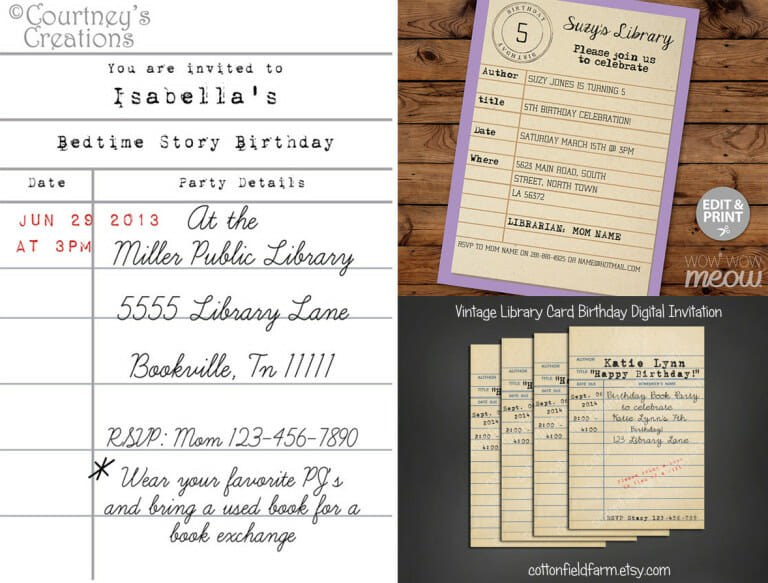 © Courtney's
Creations
You are invited to
Isabella's
Bedtime Story Birthday
Date Party Details
JUN 29 2013 At the
AT 3PM Miller Public Library
5555 Library Lane
Bookville, Tn 11111
RSVP: Mom 123-456-7890
* Wear your favorite PJ's
and bring a used book for a
book exchange
BIRTHDAY
5
BIRTHDAY
Suzy's Library
Please join us
to celebrate
Author SUZY JONES IS TURNING 5
title 5TH BIRTHDAY CELEBRATION!
Date SATURDAY MARCH 15TH @ 3PM
Where 5623 MAIN ROAD, SOUTH
STREET, NORTH TOWN
LA 56372
LIBRARIAN: MOM NAME
RSVP TO MOM NAME ON 281-881-4925 OR NAME@HOTMAIL.COM
EDIT &
PRINT
WOW WOW
meow
Vintage Library Card Birthday Digital Invitation
AUTHOR Katie Lynn
TITLE "Happy Birthday!"
DATE DUE BORROWER'S NAME
Sept. 06 Birthday Book Party
2014 to celebrate
2:00 - Katie Lynn's 7th
4:00 Birthday!
123 Library Lane
RSVP Stacy 123-456-789
cottonfieldfarm.etsy.com